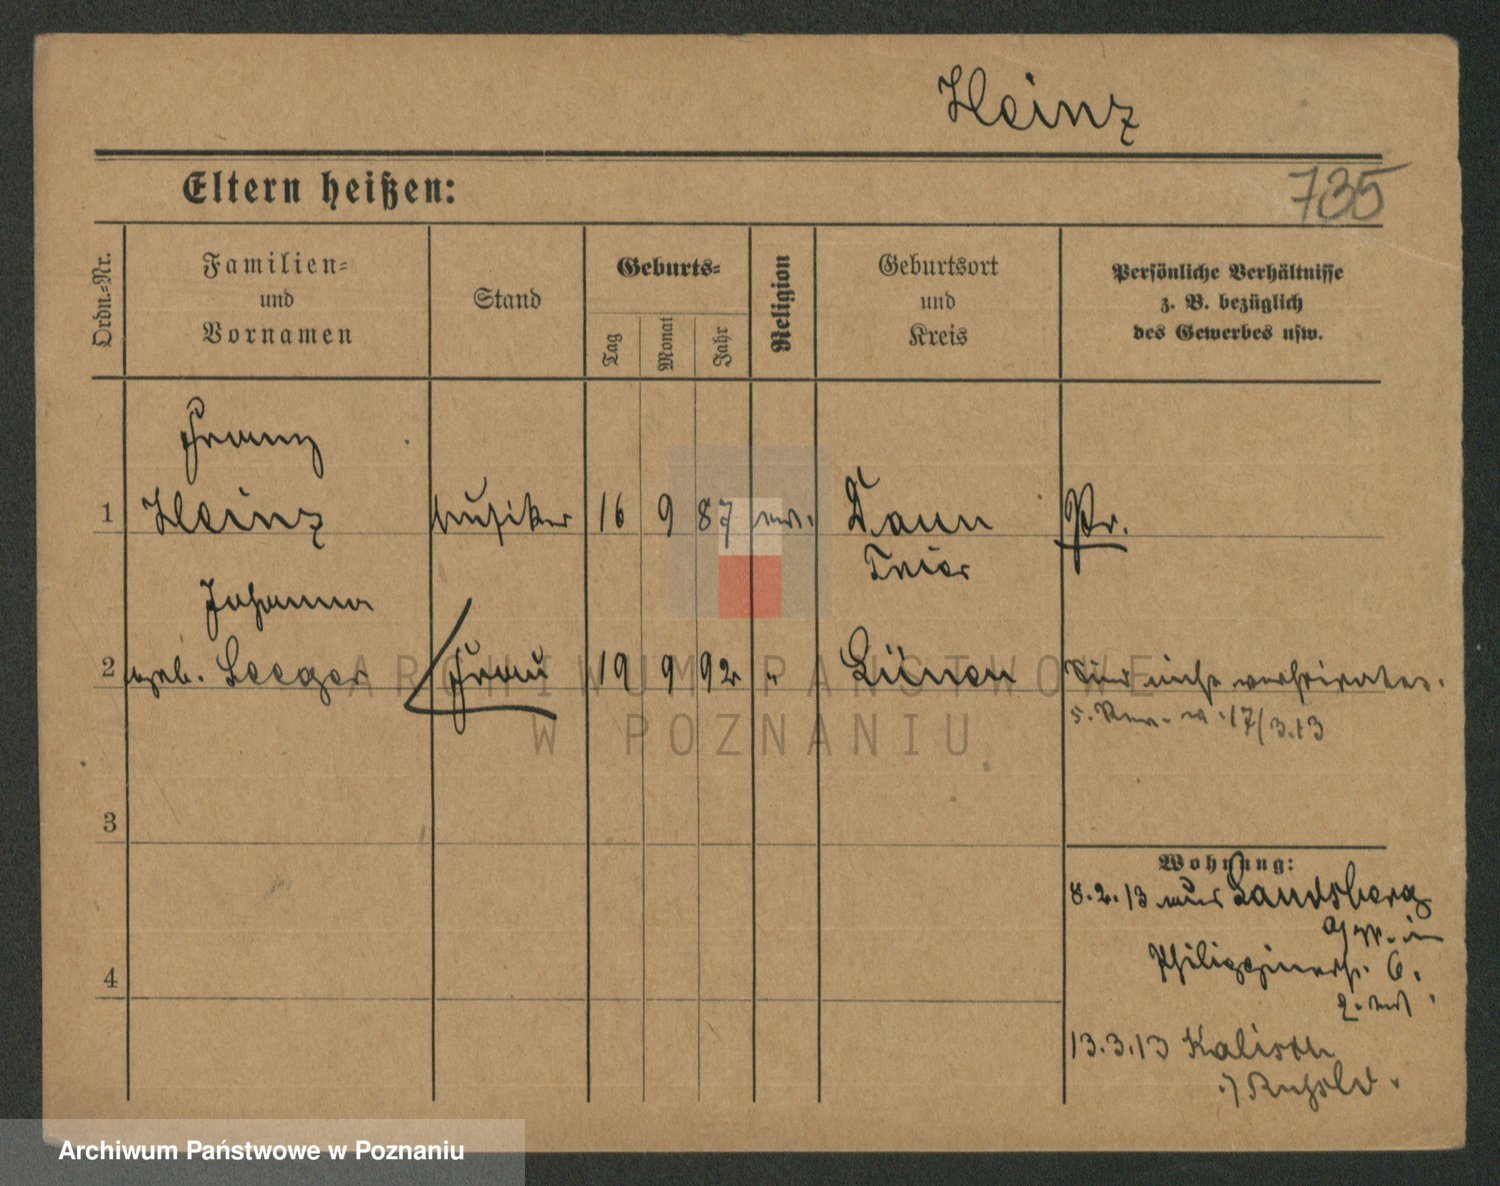 Heinz
Eltern heißen:
735
Ordn.-Nr.
Familien-
und
Vornamen
Stand
Geburts-
Tag
Monat
Jahr
Religion
Geburtsort
und
Kreis
Persönliche Verhältnisse
z. B. bezüglich
des Gewerbes usw.
Franz
1 Heinz Musiker 16 9 87 ev. Daun Pr.
Trier
Johanna
2 geb. Seeger Frau 19 9 92 " Lünen Sind nicht verheiratet.
17/3.13
3
4
Wohnung:
8.2.13 aus Landsberg
Philippinenstr. 6.
13.3.13 Kalisch
i/Rußld.
ARCHIWUM PAŃSTWOWE
W POZNANIU
Archiwum Państwowe w Poznaniu